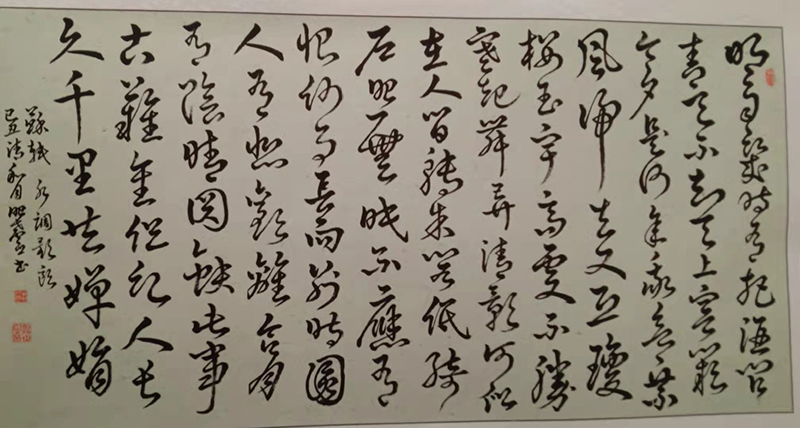 明月幾時有把酒问
青天不知天上宫阙
今夕是何年我欲乘
風归去又恐瓊
楼玉宇高处不勝
寒起舞弄清影何似
在人间转朱阁低绮
户照無眠不應有
恨何事長向别時圓
人有悲歡離合月
有陰晴圆缺此事
古難全但願人长
久千里共嬋娟
蘇軾 水調歌頭
己丑清和月 書